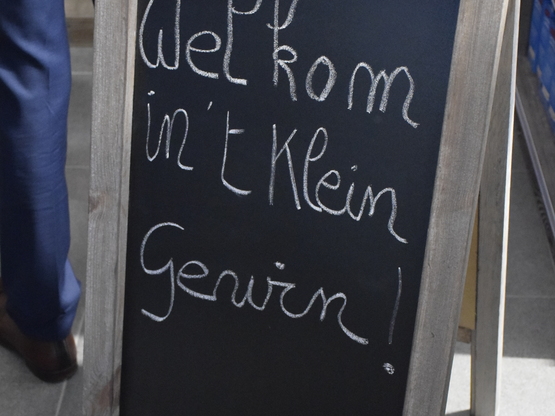 Welkom
in't Klein
Gewin!